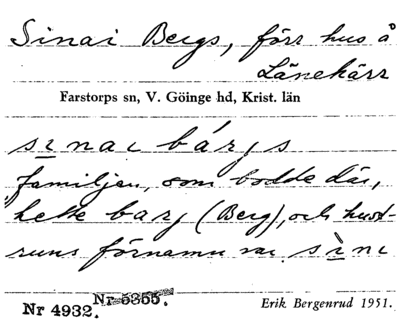 Sinai Bergs, förr hus å
Länekärr
Farstorps sn, V. Göinge hd, Krist. län
sịnaị bárjs
familjen, som bodde där,
hette barj (Berg), och hust-
runs förnamn var sìni
Nr 5355.
Nr 4932.
Erik Bergenrud 1951.